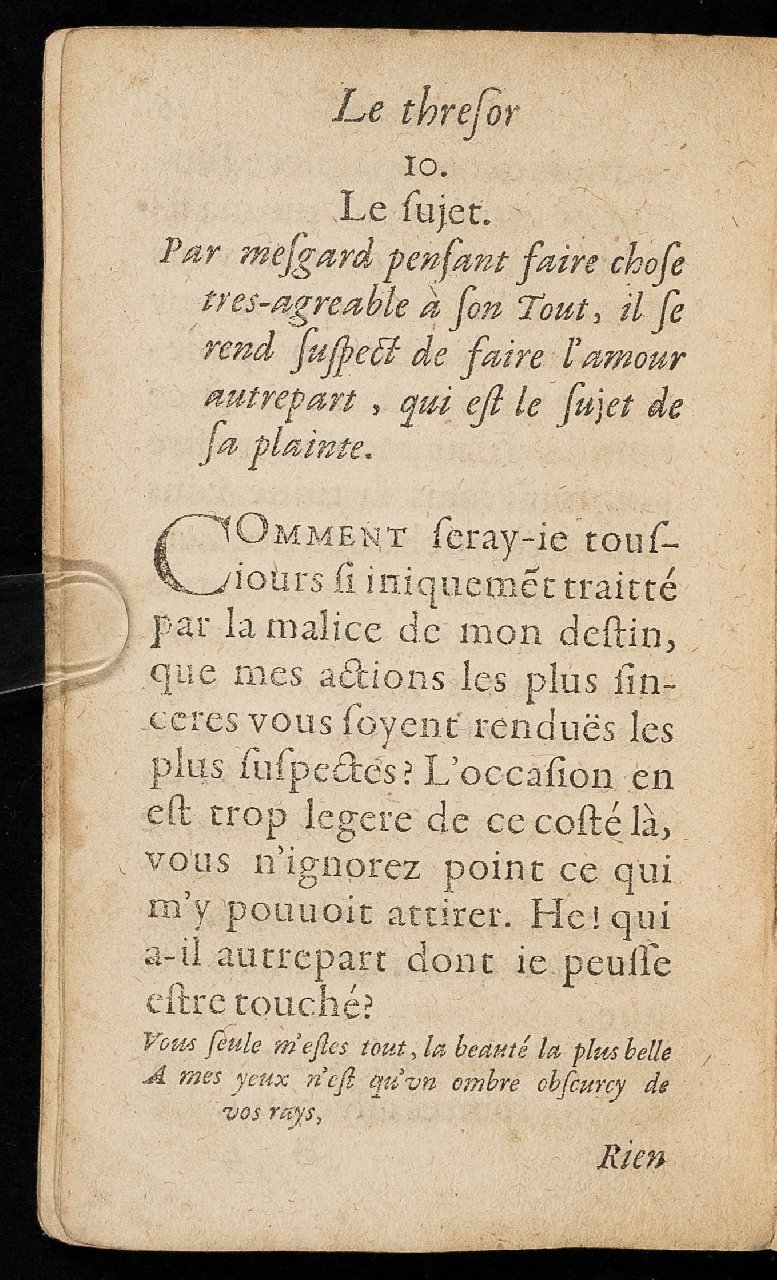 Le threſor
10.
Le ſujet.
Par meſgard penſant faire choſe
tres-agreable à ſon Tout, il ſe
rend ſuſpect de faire l'amour
autrepart, qui eſt le ſujet de
ſa plainte.
COMMENT ſeray-ie touſ-
iours ſi iniquemẽt traitté
par la malice de mon deſtin,
que mes actions les plus ſin-
ceres vous ſoyent renduës les
plus ſuſpectes? L'occaſion en
eſt trop legere de ce coſté là,
vous n'ignorez point ce qui
m'y pouuoit attirer. He! qui
a-il autrepart dont ie peuſſe
eſtre touché?
Vous ſeule m'eſtes tout, la beauté la plus belle
A mes yeux n'eſt qu'vn ombre obſcurcy de
vos rays,
Rien